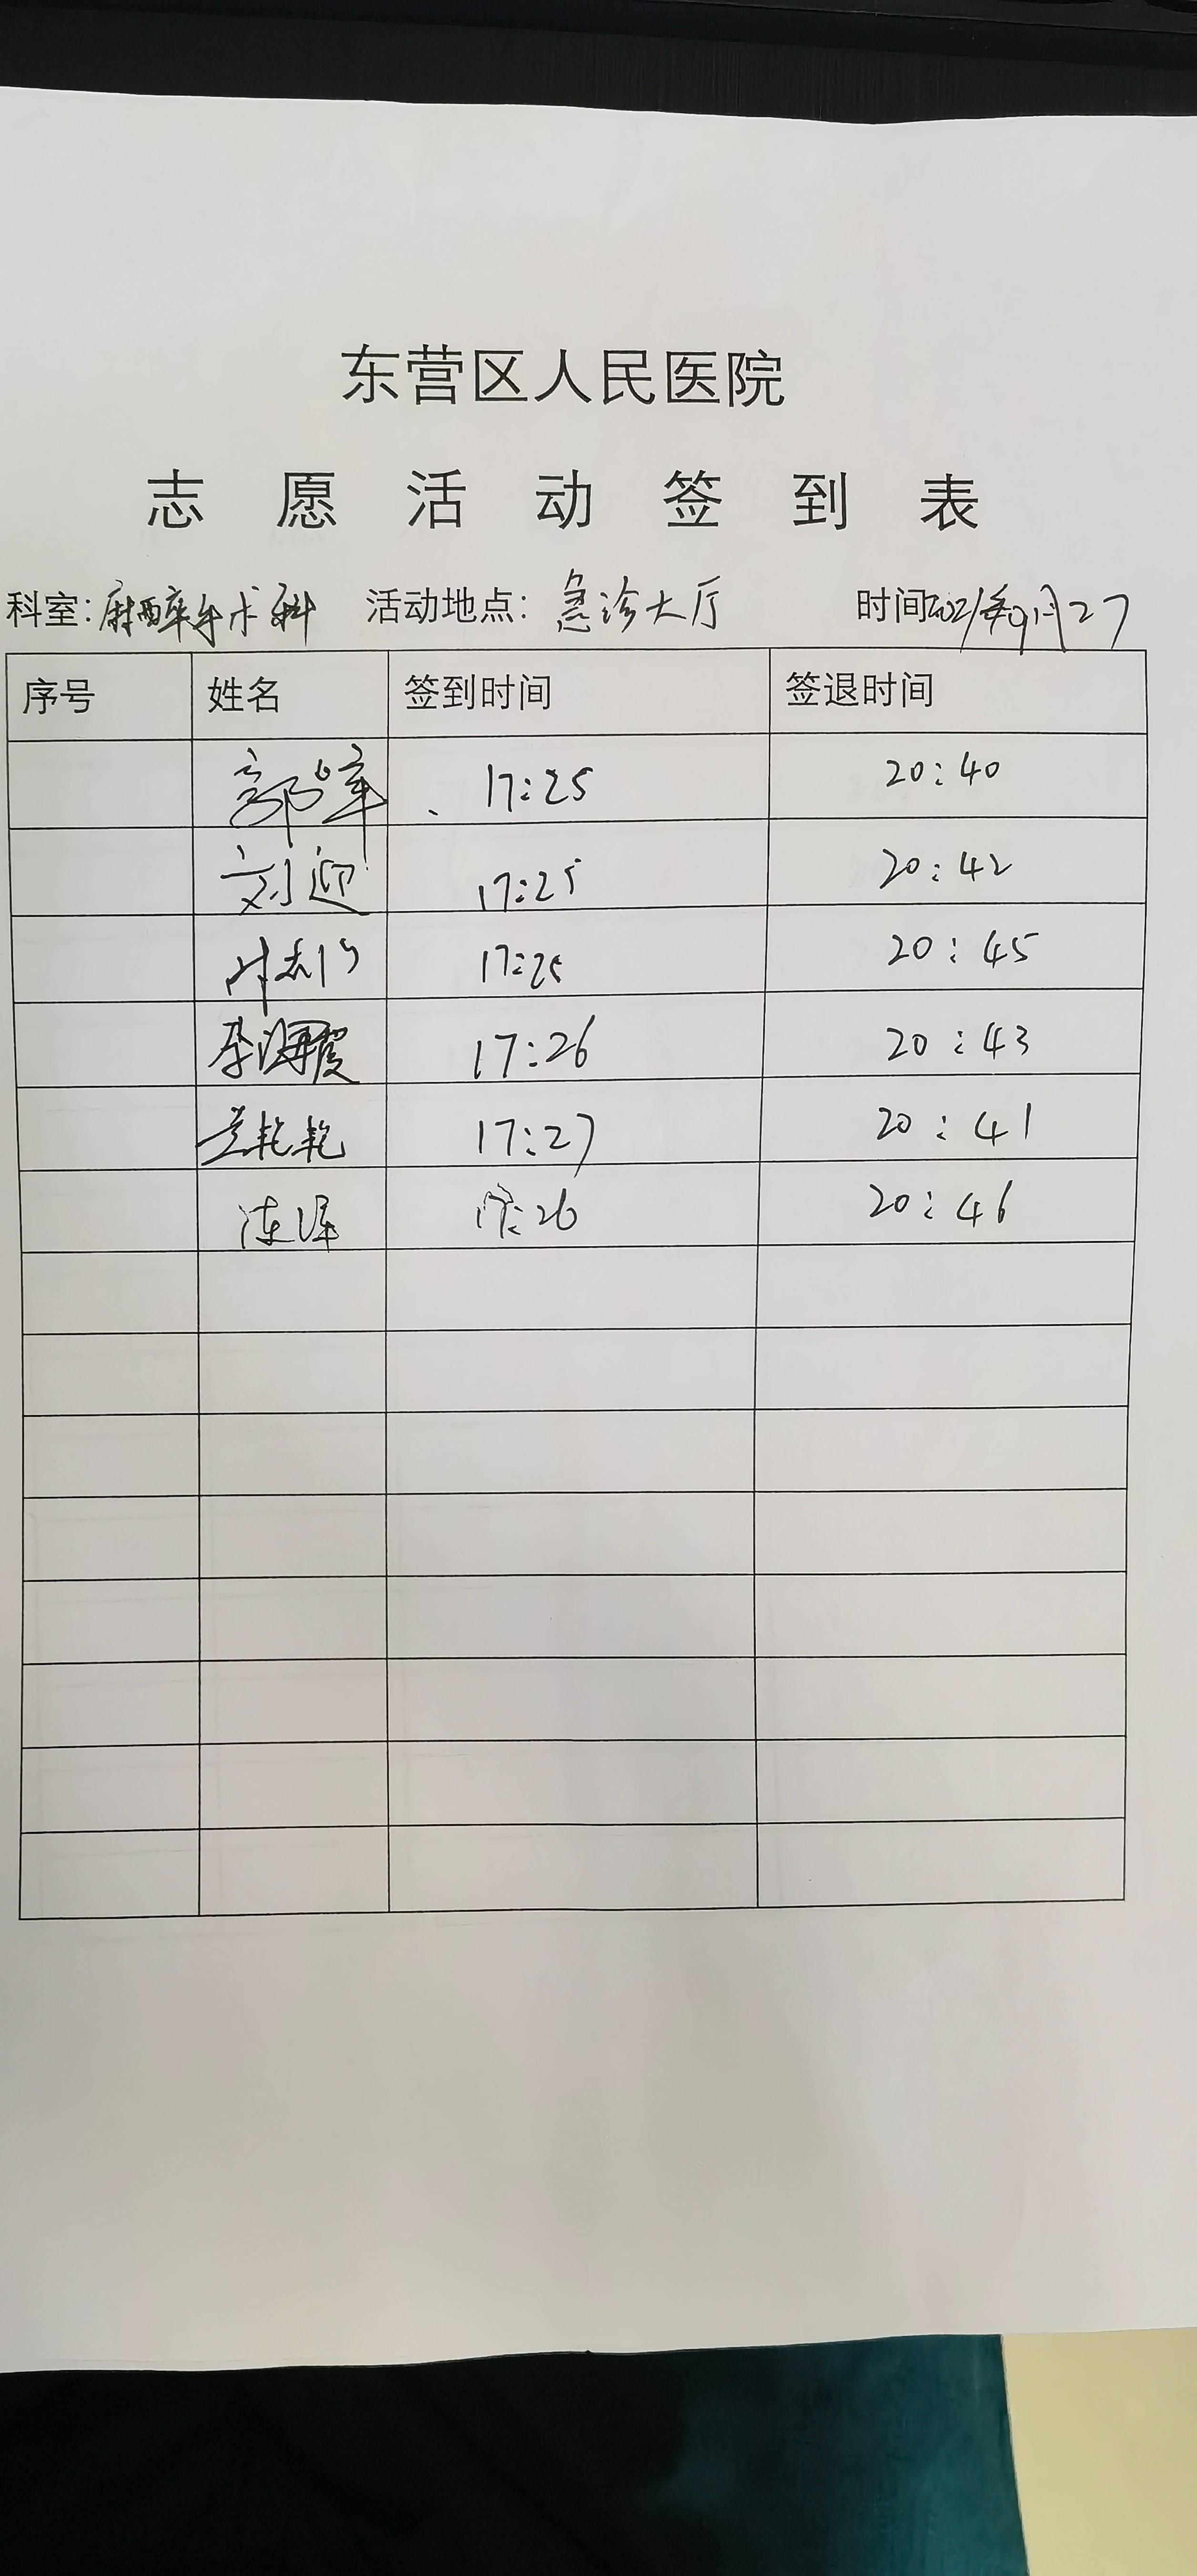 东营区人民医院
志愿活动签到表
科室：麻醉手术科 活动地点：急诊大厅 时间2021年9月27
序号 姓名 签到时间 签退时间
17:25 20:40
刘迎 17:25 20:42
17:25 20:45
李海霞 17:26 20:43
兰艳艳 17:27 20:41
陈泽 17:26 20:46